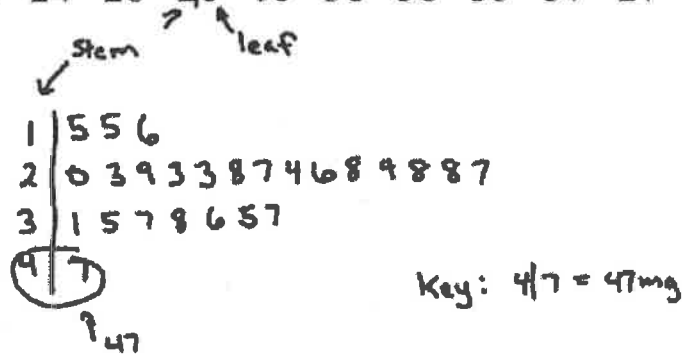 Stem
leaf
1 | 5 5 6
2 | 0 3 9 3 3 8 7 4 6 8 9 8 8 7
3 | 1 5 7 8 6 5 7
4 | 7
Key: 4|7 = 47mg
47